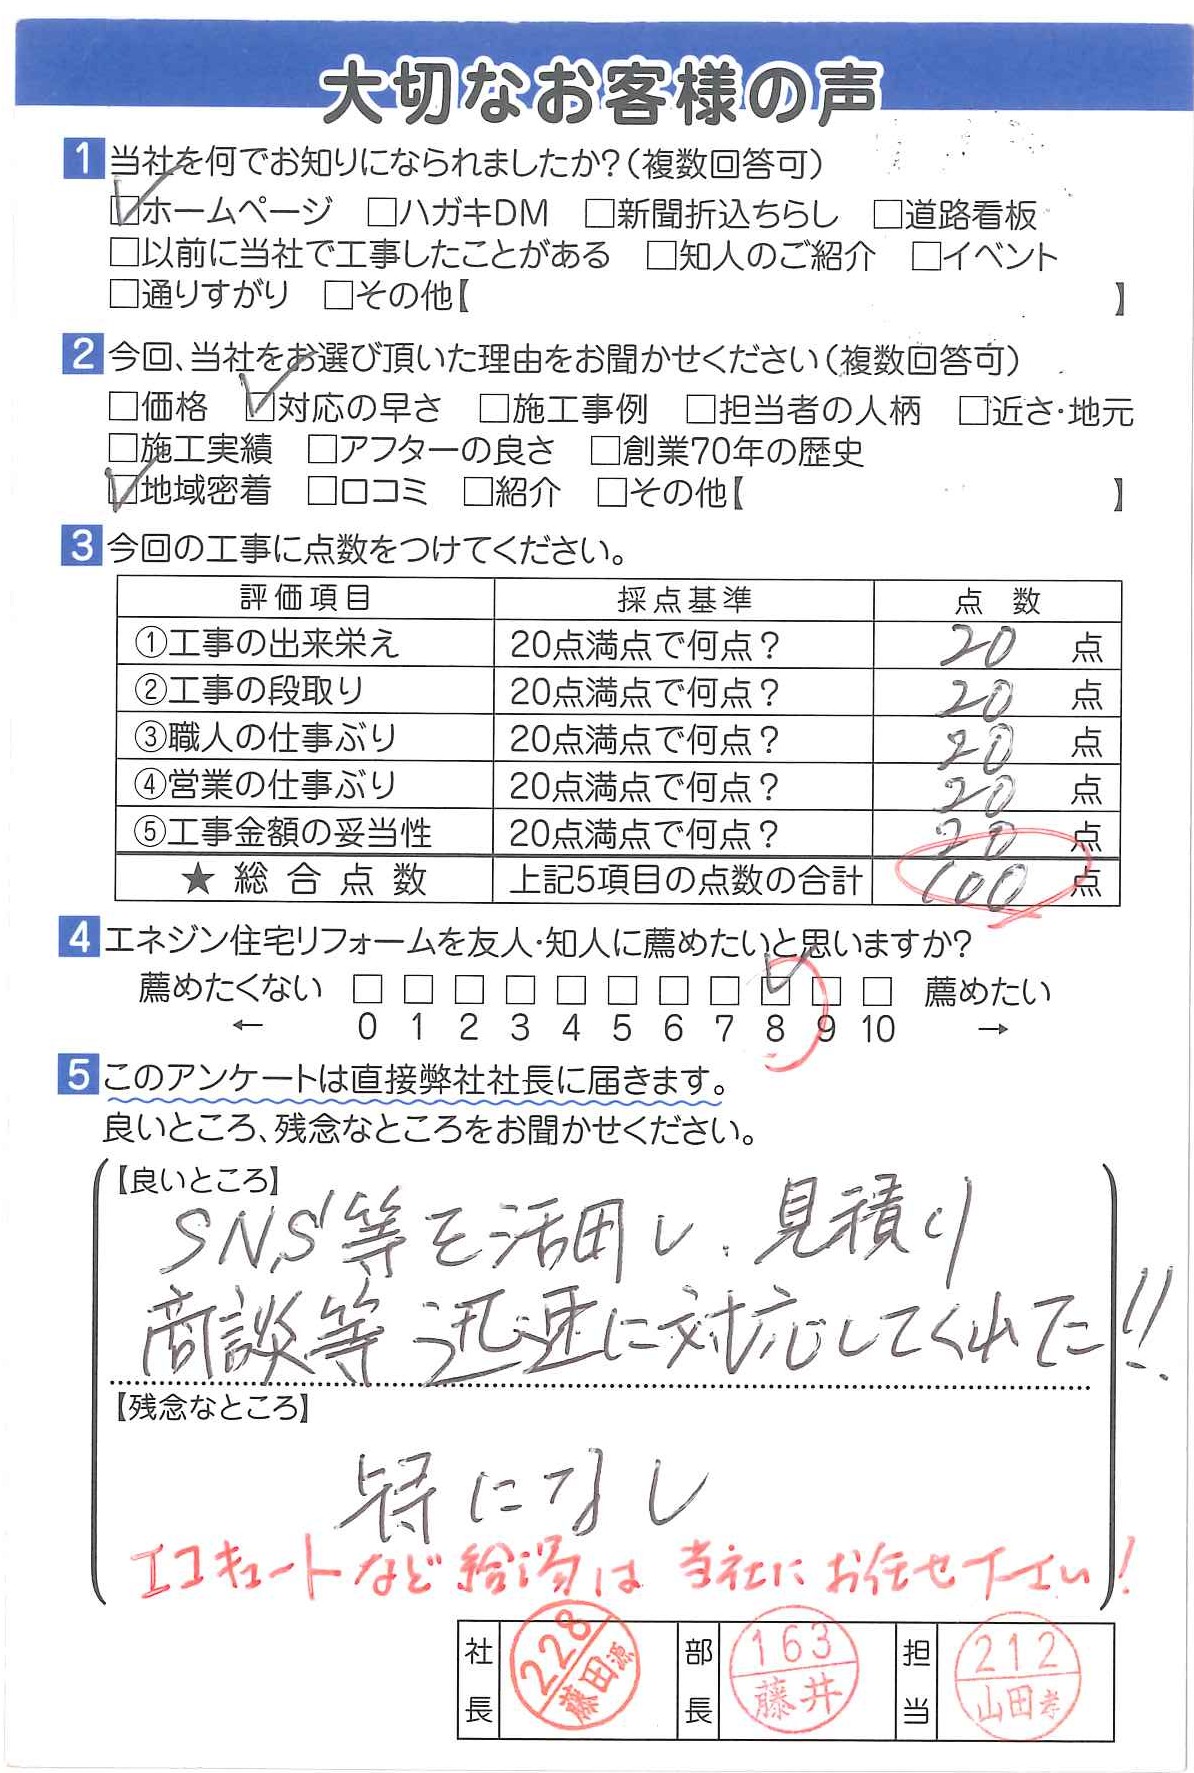 大切なお客様の声
1 当社を何でお知りになられましたか?(複数回答可)
☑ホームページ □ハガキDM □新聞折込ちらし □道路看板
□以前に当社で工事したことがある □知人のご紹介 □イベント
□通りすがり □その他【 】
2 今回、当社をお選び頂いた理由をお聞かせください(複数回答可)
□価格 ☑対応の早さ □施工事例 □担当者の人柄 □近さ・地元
□施工実績 □アフターの良さ □創業70年の歴史
☑地域密着 □口コミ □紹介 □その他【 】
3 今回の工事に点数をつけてください。
評価項目 採点基準 点数
①工事の出来栄え 20点満点で何点? 20 点
②工事の段取り 20点満点で何点? 20 点
③職人の仕事ぶり 20点満点で何点? 20 点
④営業の仕事ぶり 20点満点で何点? 20 点
⑤工事金額の妥当性 20点満点で何点? 20 点
★総合点数 上記5項目の点数の合計 100 点
4 エネジン住宅リフォームを友人・知人に薦めたいと思いますか?
薦めたくない □ □ □ □ □ □ □ □ ☑ □ □ 薦めたい
← 0 1 2 3 4 5 6 7 8 9 10 →
5 このアンケートは直接弊社社長に届きます。
良いところ、残念なところをお聞かせください。
【良いところ】
SNS等を活用し、見積り
商談等迅速に対応してくれた!!
【残念なところ】
特になし
エコキュートなど給湯は当社にお任せ下さい!
社長 228 藤田源 部長 163 藤井 担当 212 山田孝